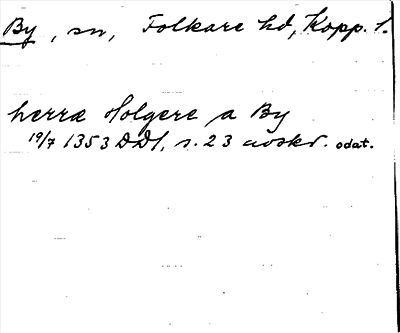 By, sn, Folkare hd, Kopp. l.
herra Holgere a By
19/7 1353 DD1, s. 23 avskr. odat.